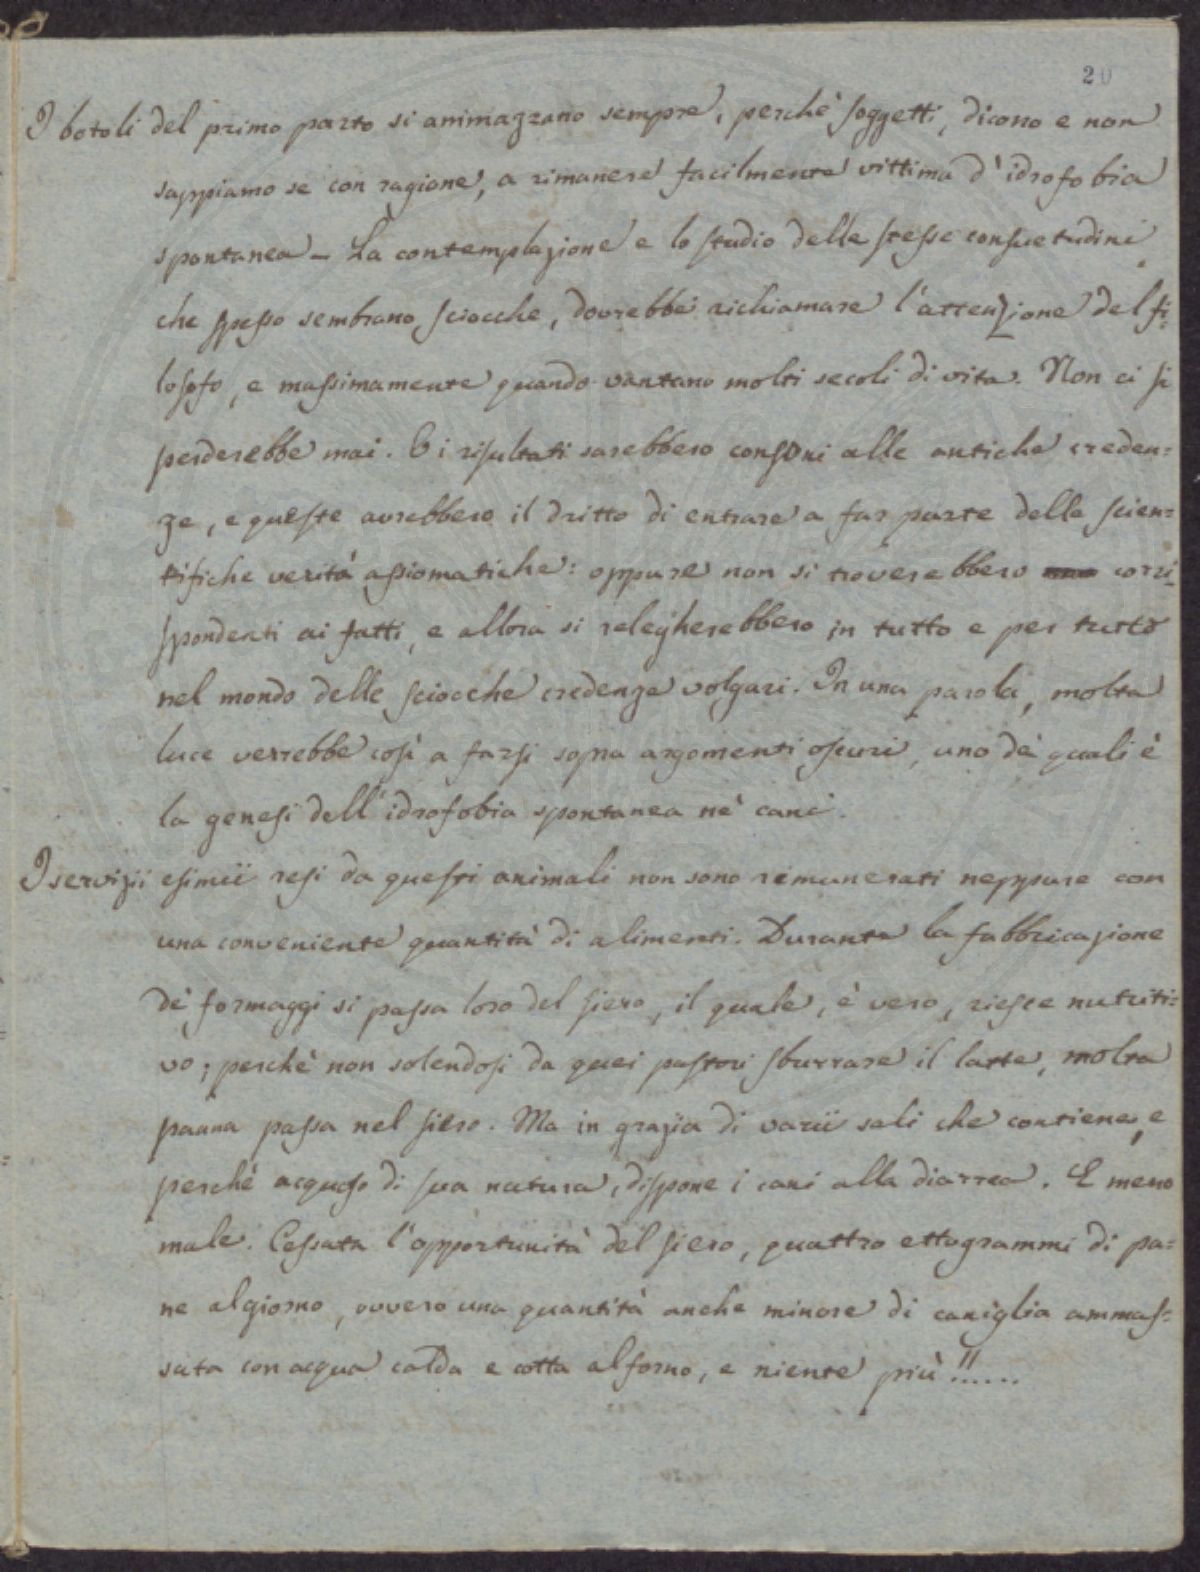 20
I botoli del primo parto si ammazzano sempre, perchè soggetti, dicono e non
sappiamo se con ragione, a rimanere facilmente vittima d'idrofobia
spontanea – La contemplazione e lo studio delle stesse consuetudini
che spesso sembrano sciocche, dovrebbe richiamare l'attenzione del fi=
losofo, e massimamente quando vantano molti secoli di vita. Non ci si
perderebbe mai. O i risultati sarebbero consoni alle antiche creden=
ze, e queste avrebbero il dritto di entrare a far parte delle scien=
tifiche verità assiomatiche: oppure non si troverebbero corri=
spondenti ai fatti, e allora si relegherebbero in tutto e per tutto
nel mondo delle sciocche credenze volgari. In una parola, molta
luce verrebbe così a farsi sopra argomenti oscuri, uno de' quali è
la genesi dell'idrofobia spontanea ne' cani.
I servizii esimii resi da questi animali non sono remunerati neppure con
una conveniente quantità di alimenti. Durante la fabbricazione
de' formaggi si passa loro del siero, il quale, è vero, riesce nutriti=
vo; perchè non solendosi da quei pastori sburrare il latte, molta
panna passa nel siero. Ma in grazia di varii sali che contiene, e
perchè acquoso di sua natura, dispone i cani alla diarrea. E meno
male. Cessata l'opportunità del siero, quattro ettogrammi di pa=
ne al giorno, ovvero una quantità anche minore di caniglia ammas=
sata con acqua calda e cotta al forno, e niente più!!......